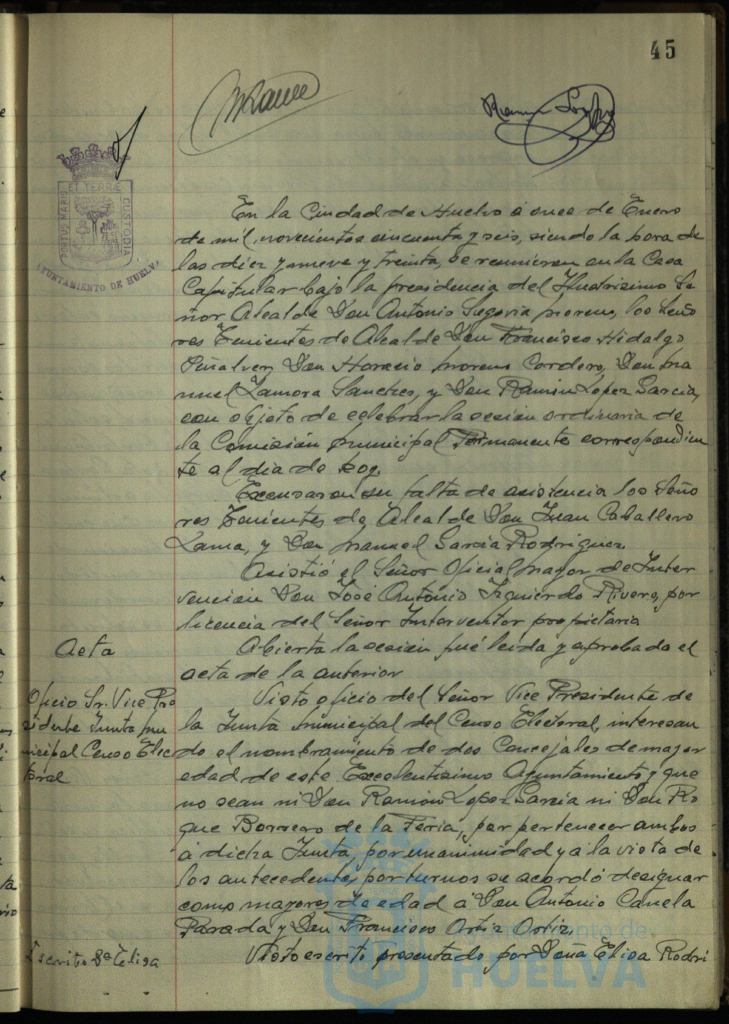 45
Ramon Lopez
ET TERRÆ
PORTUS MARIS
CUSTODIA
AYUNTAMIENTO DE HUELVA
En la Ciudad de Huelva á once de Enero
de mil, novecientos cincuenta y seis, siendo la hora de
las diez y nueve y treinta, se reunieron en la Casa
Capitular bajo la presidencia del Ilustrisimo Se
ñor Alcalde Don Antonio Segovia Moreno, los Seño
res Tenientes de Alcalde Don Francisco Hidalgo
Peñalver, Don Horacio Moreno Cordero, Don Ma
nuel Zamora Sanchez, y Don Ramón Lopez Garcia,
con objeto de celebrar la sesión ordinaria de
la Comisión Municipal Permanente correspondien
te al dia de hoy.
Excusaron su falta de asistencia los Seño
res Tenientes de Alcalde Don Juan Caballero
Lama, y Don Manuel Garcia Rodriguez.
Asistió el Señor Oficial Mayor de Inter
vención Don José Antonio Izquierdo Rivero, por
licencia del Señor Interventor propietario
Acta
Abierta la sesión fué leida y aprobada el
acta de la anterior
Oficio Sr. Vice Pre
sidente Junta Mu
nicipal Censo Elec
toral
Visto oficio del Señor Vice Presidente de
la Junta Municipal del Censo Electoral, interesan
do el nombramiento de dos Concejales de mayor
edad de este Excelentisimo Ayuntamiento y que
no sean ni Don Ramón Lopez Garcia ni Don Ro
que Borrero de la Feria, por pertenecer ambos
á dicha Junta, por unanimidad y a la vista de
los antecedentes, por turnos se acordó designar
como mayores de edad á Don Antonio Canela
Parada y Don Francisco Ortiz Ortiz.
Escrito Dª Elisa
Visto escrito presentado por Doña Elisa Rodri
HUELVA